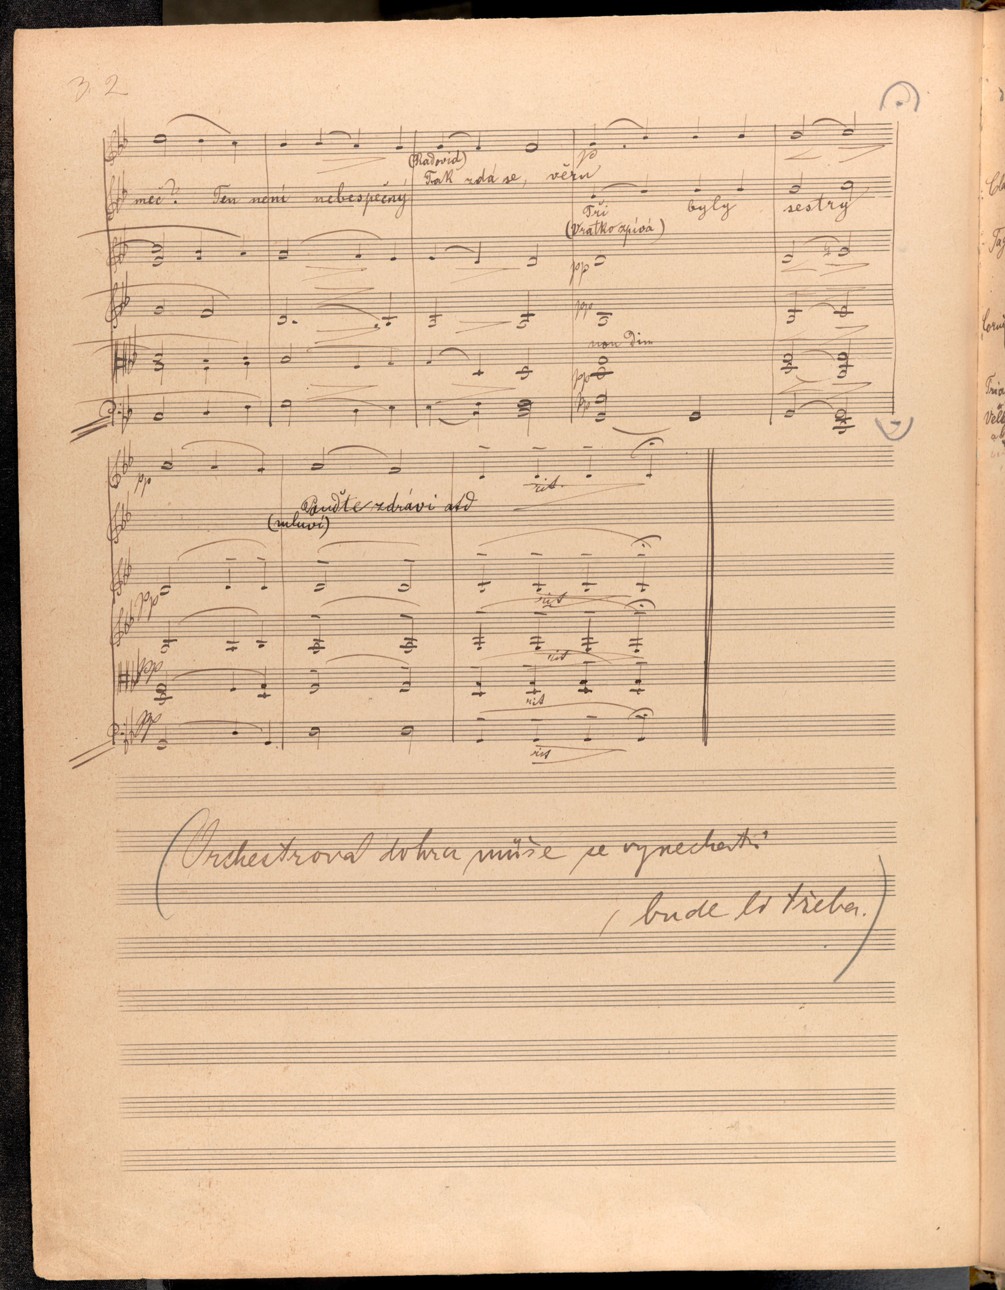 32
(Radovid)
p
Tak zdá se, věru
meč? Ten není nebezpečný
Tři byly sestry
(Vratko zpívá)
pp
pp
non dim
pp
pp
pp
rit.
Buďte zdrávi atd
(mluví)
pp
rit
pp
rit
pp
rit
rit
(Orchestrová dohra může se vynechati
, bude li třeba.)